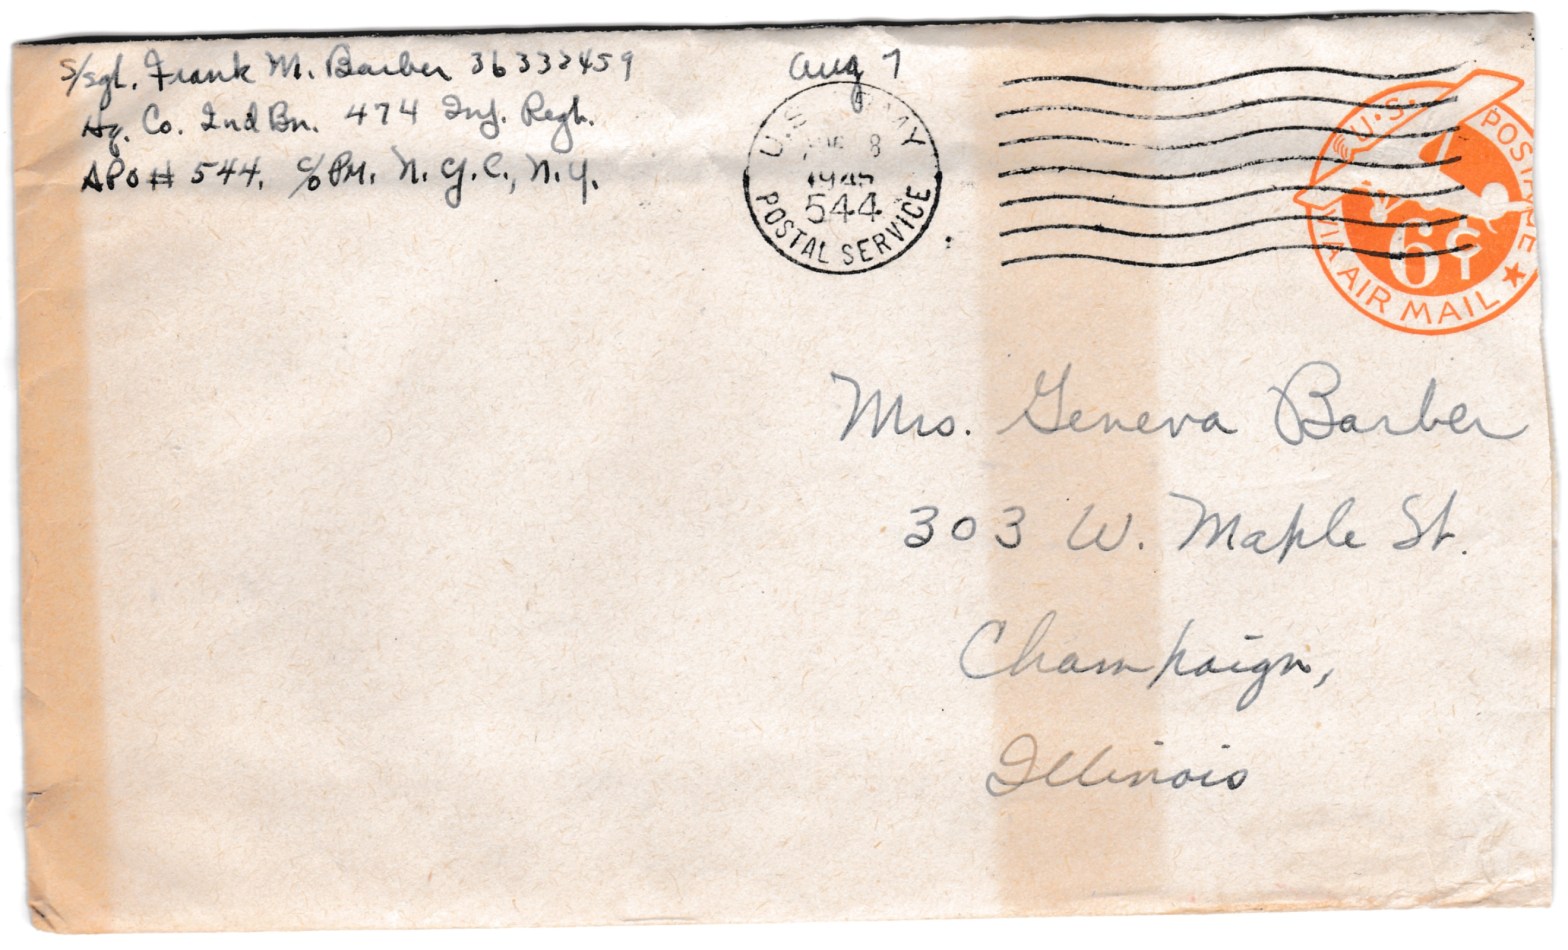 S/Sgt. Frank M. Barber 36332459
Hq. Co. 2nd Bn. 474 Inf. Regt.
APO # 544, c/o PM. N.Y.C., N.Y.
Aug 7
U.S. ARMY
8
1945
544
POSTAL SERVICE
U.S. POSTAGE
6¢
VIA AIR MAIL
Mrs. Geneva Barber
303 W. Maple St.
Champaign,
Illinois